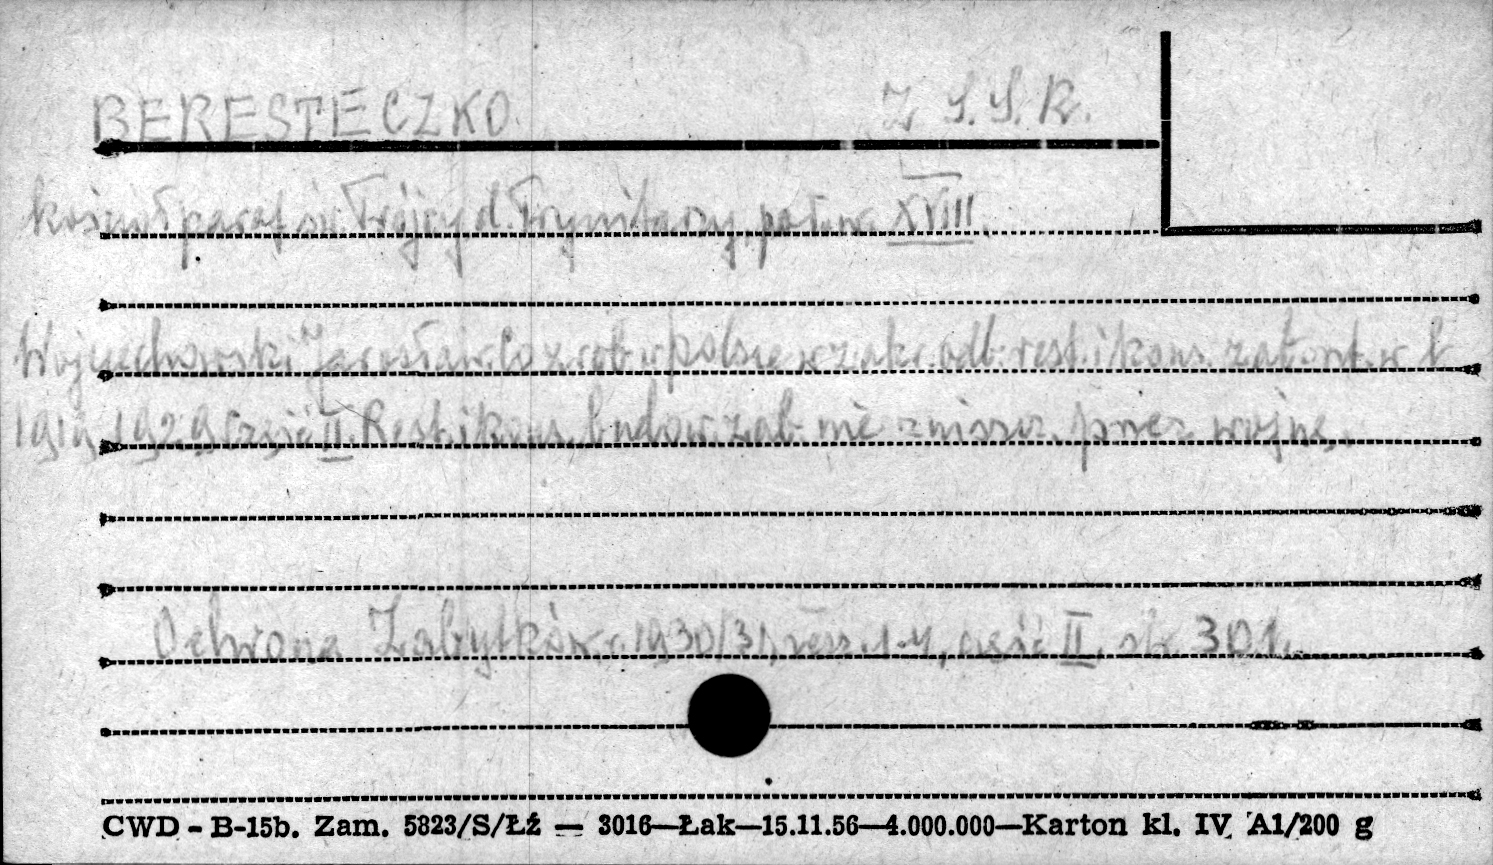 BERESTECZKO Z S.S.R.
kościół paraf. św. Trójcy d. Trynitarzy, poł. w. XVIII
Wojciechowski Jarosław. Co zrob. w Polsce w zakr. odb. rest. i kons. zab. w l.
1919-1929 Część II. Rest. i kons. budow. zab. nie zniszcz. przez wojnę.
Ochrona Zabytków. 1930/31, zesz. 1-4, część II, str. 301.
CWD - B-15b. Zam. 5823/S/Łź — 3016—Łak—15.11.56—4.000.000—Karton kl. IV A1/200 g